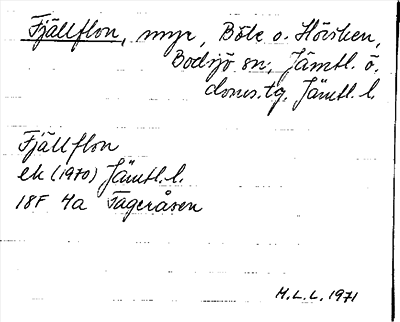 Fjällflon, myr, Böle o. Hörsken,
Bodsjö sn, Jämtl. ö.
doms.tg. Jämtl. l.
Fjällflon
ek (1970) Jämtl. l.
18F 4a Tageråsen
H.L.L. 1971